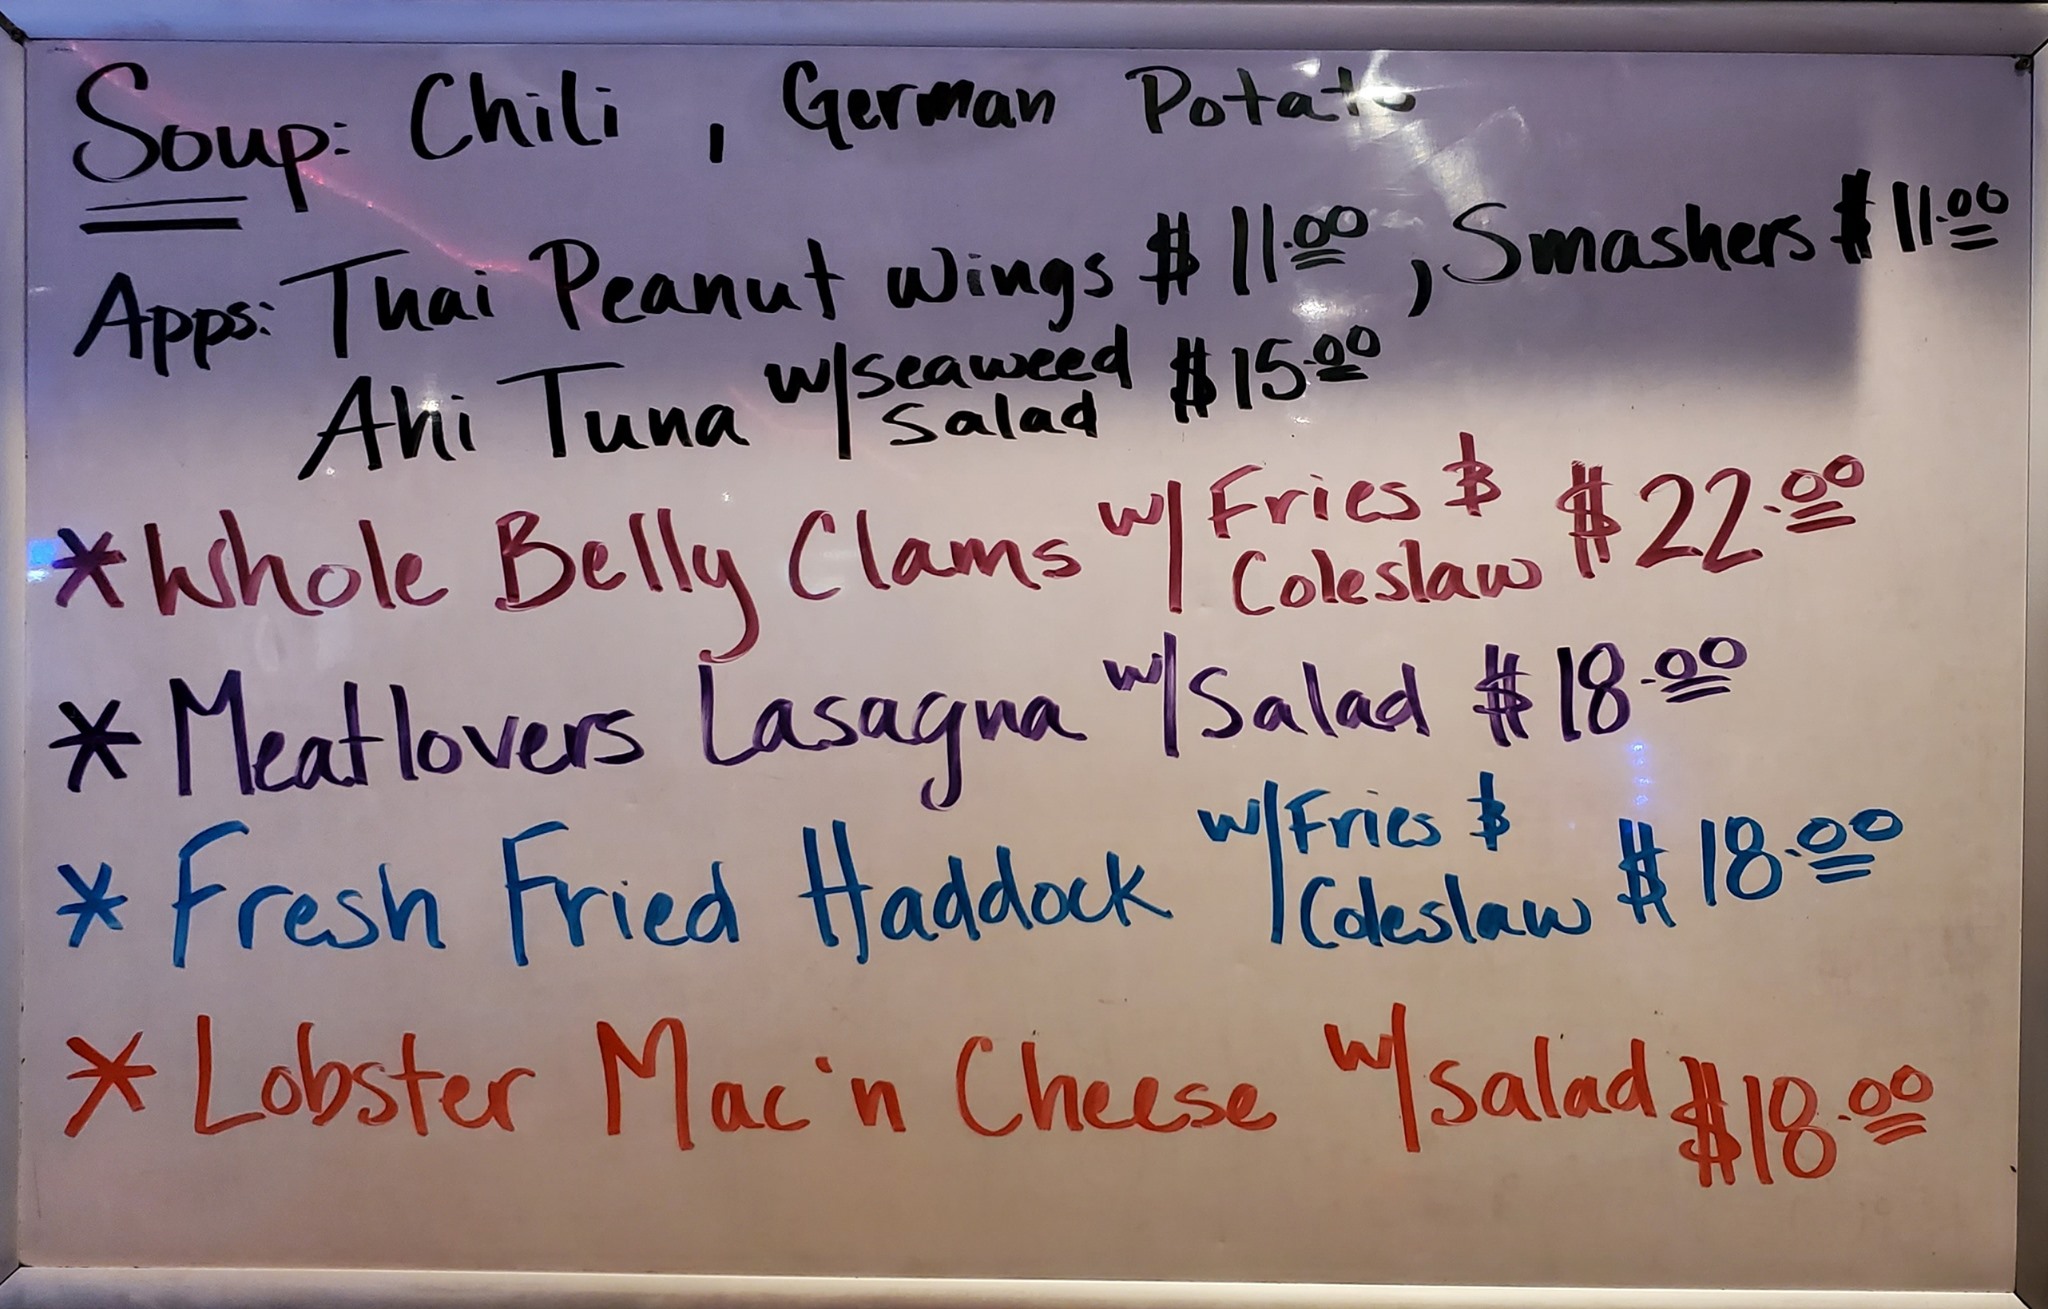 Soup: Chili, German Potato
Apps: Thai Peanut Wings $11.00, Smashers $11.00
Ahi Tuna w/seaweed salad $15.00
*Whole Belly Clams w/ Fries & Coleslaw $22.00
* Meatlovers Lasagna w/Salad $18.00
* Fresh Fried Haddock w/Fries & Coleslaw $18.00
* Lobster Mac'n Cheese w/salad $18.00